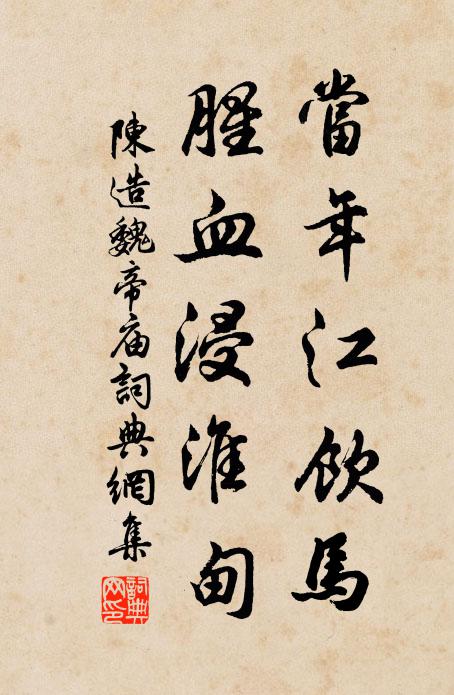 當年江飲馬
腥血浸淮甸
陳造魏帝庙詞典網集
詞典网印